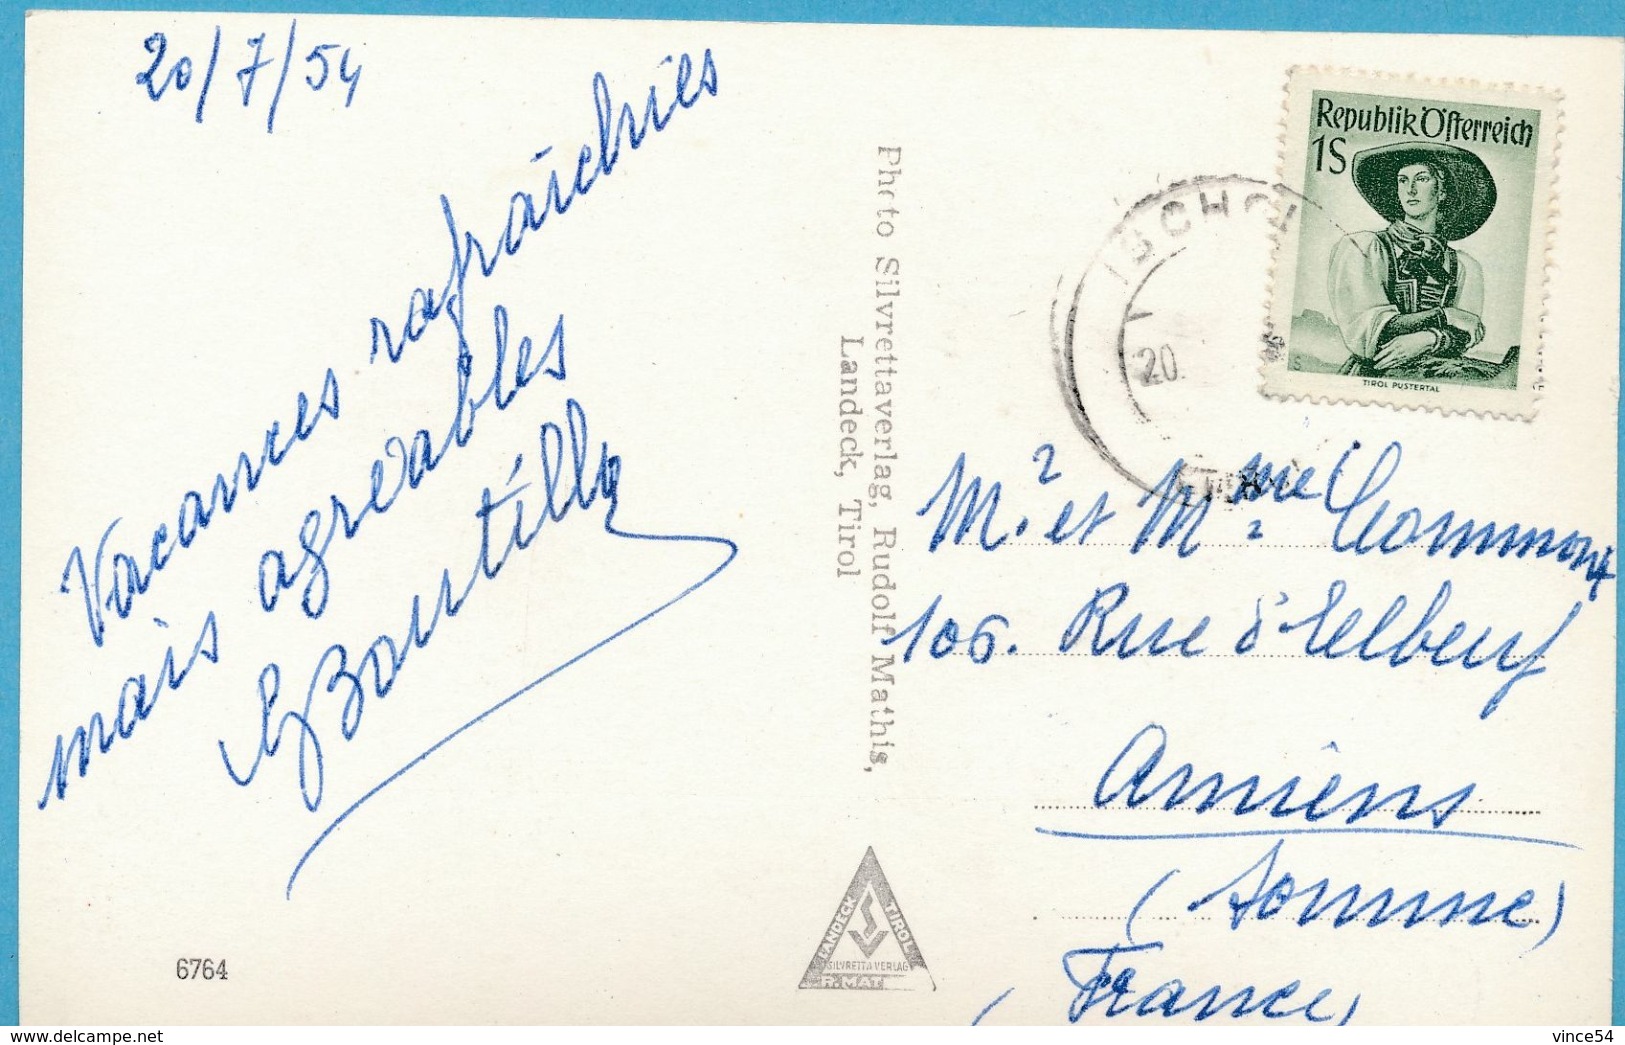 20/7/54
Vacances rafraîchies
mais agréables
Republik Österreich
1S
TIROL PUSTERTAL
ISCHGL
20
Photo Silvrettaverlag, Rudolf Mathis,
Landeck, Tirol
Mr et Mme Commont
106. Rue d'Elbeuf
Amiens
(Somme)
(France)
LANDECK TIROL
SILVRETTA VERLAG
R. MAT
6764
delcampe.net
vince54